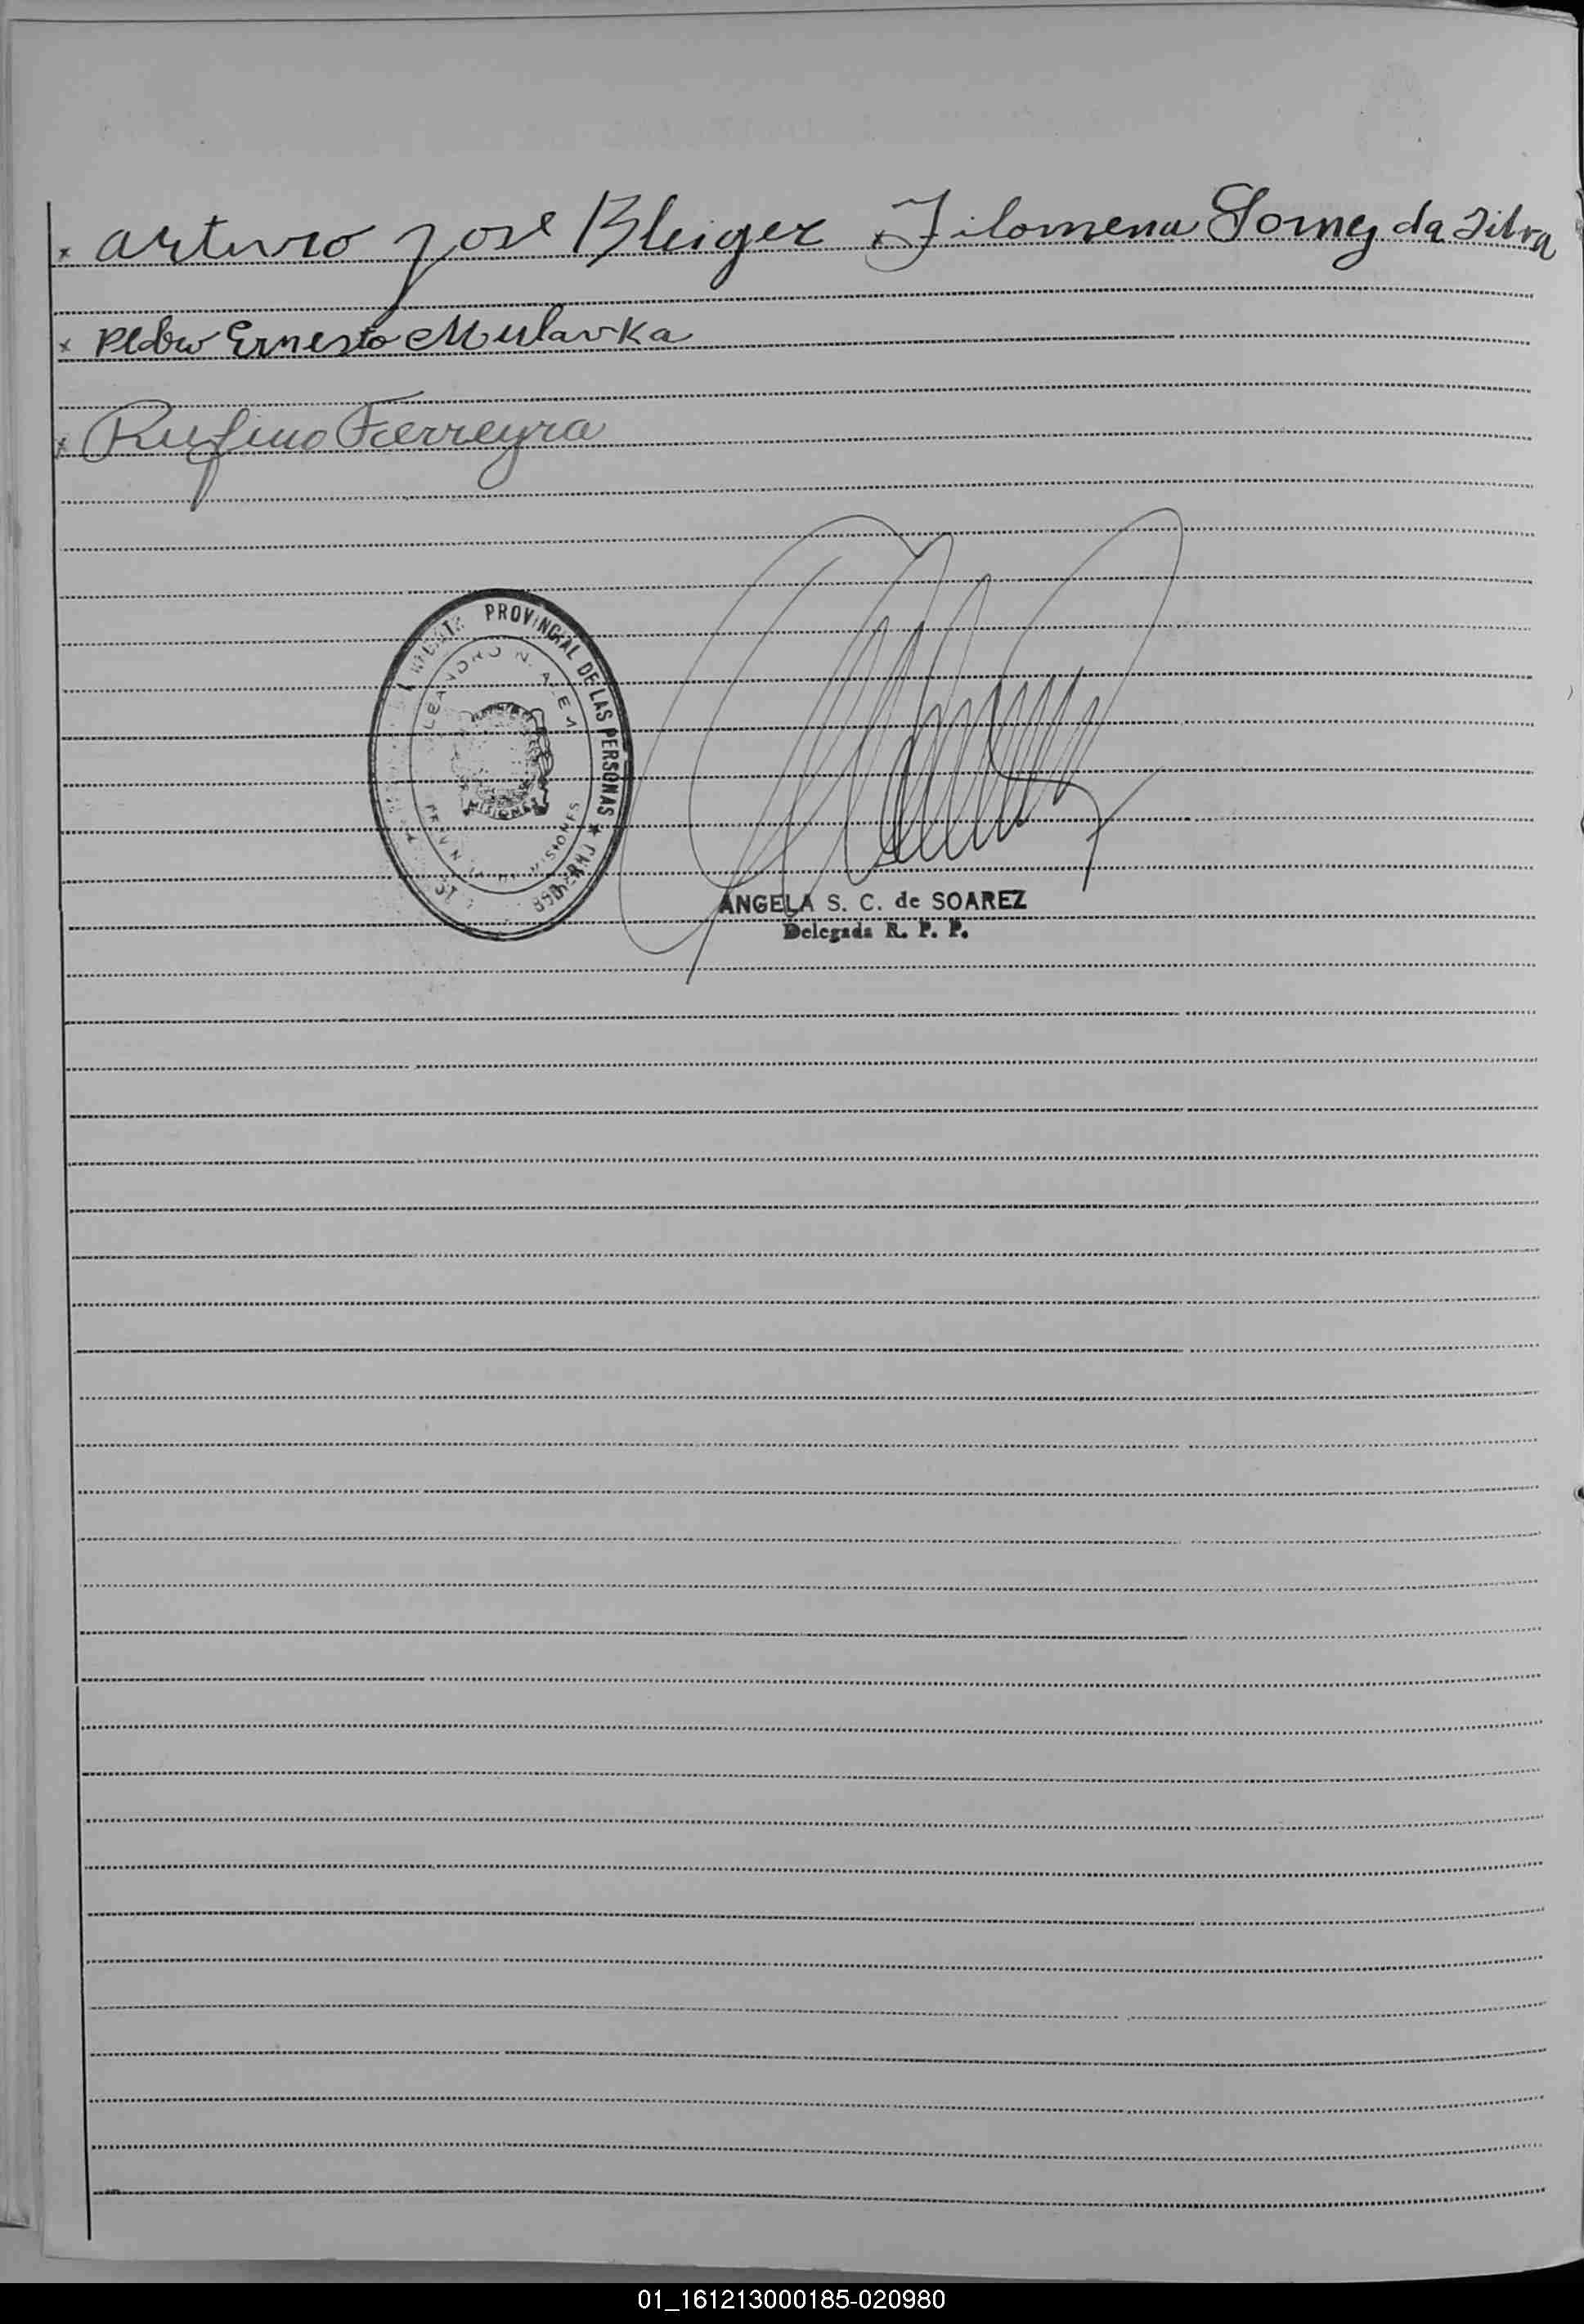 x arturo José Bleiger x Filomena Gomez da Silva
x Pedro Ernesto Mularka
x Rufino Ferreyra
PROVINCIAL DE LAS PERSONAS ★
LEANDRO N. ALEM
MISIONES
ANGELA S. C. de SOAREZ
Delegada R. P. P.
01_161213000185-020980